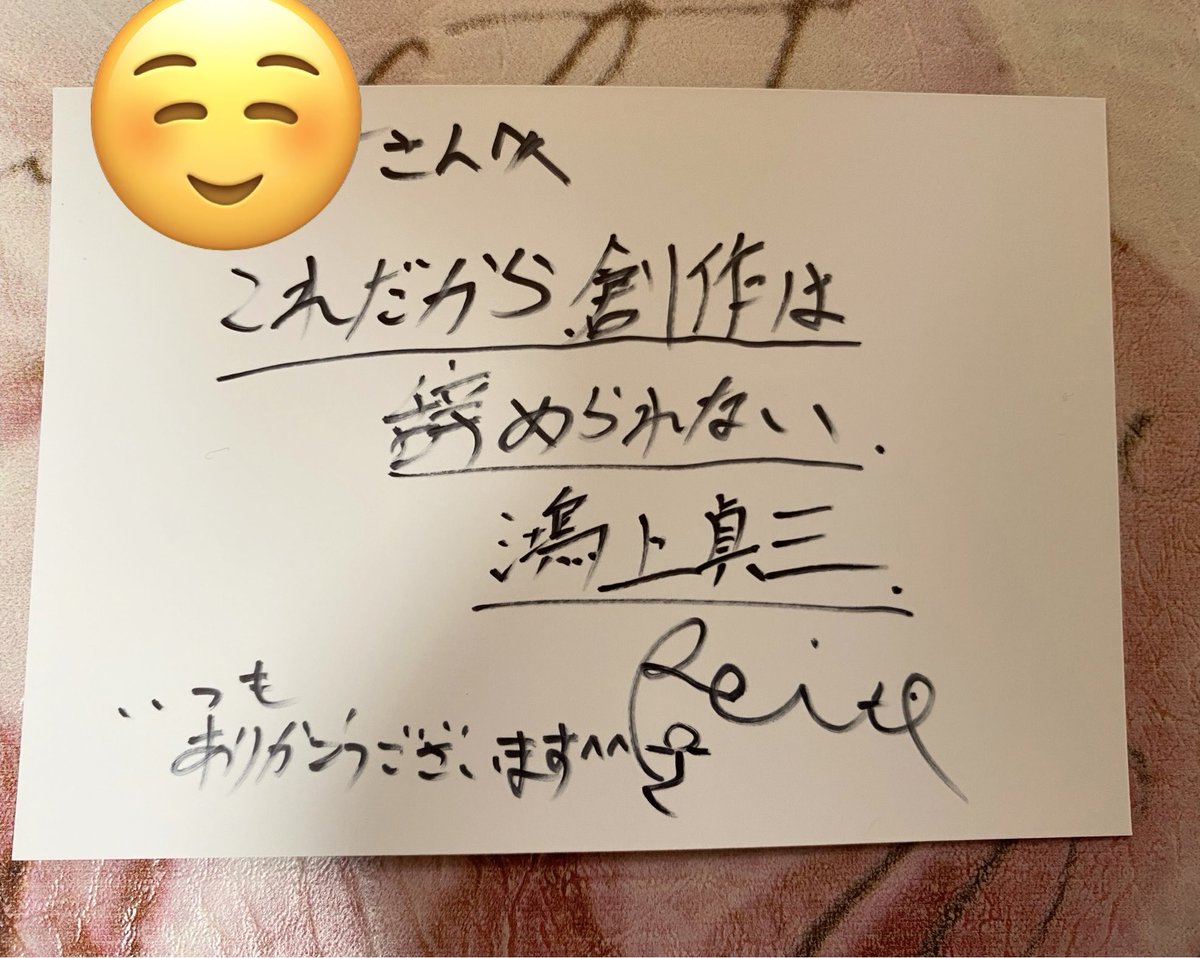 さんへ
これだから創作は
辞められない.
鴻上真三.
いつも
ありがとうございます^^